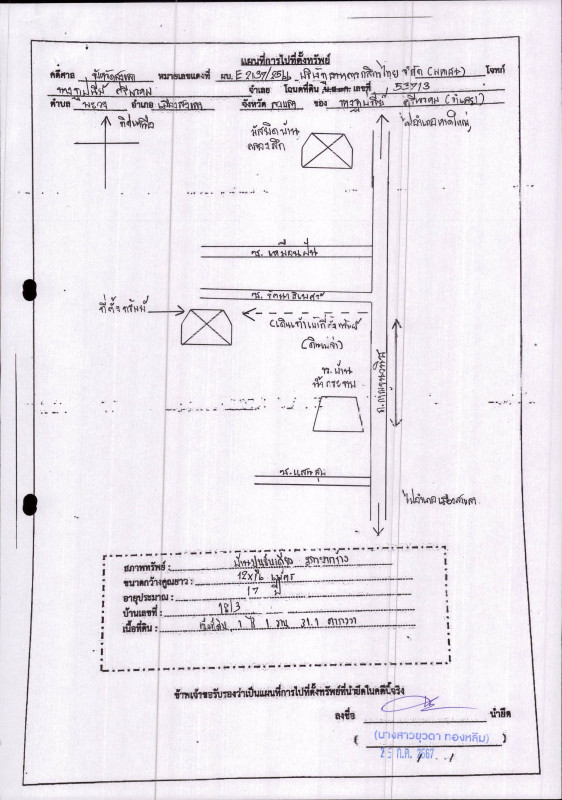 แผนที่การไปที่ตั้งทรัพย์
คดีศาล จังหวัดสงขลา หมายเลขแดงที่ ผบ. E 2137/2564 จำกัด (มหาชน) โจทก์
จำเลย โฉนดที่ดิน เลขที่ 53713
ตำบล พะวง อำเภอ เมืองสงขลา จังหวัด สงขลา ของ
ทิศเหนือ
ไปอำเภอหาดใหญ่
มัสยิดบ้าน
ซ. เหมือนฝัน
ซ. รัตนาธิเบศร์
ที่ตั้งทรัพย์
(เดินเท้าไปที่ตั้งทรัพย์)
ร.ร. บ้าน
น้ำกระจาย
ถ.กาญจนวนิช
ซ. แสนสุข
ไปอำเภอเมืองสงขลา
สภาพทรัพย์ : บ้านปูนชั้นเดียว
ขนาดกว้างคูณยาว : 12x16 เมตร
อายุประมาณ : 17 ปี
บ้านเลขที่ : 18/3
เนื้อที่ดิน : เนื้อที่ดิน 1 ไร่ 1 งาน 31.1 ตารางวา
ข้าพเจ้าขอรับรองว่าเป็นแผนที่การไปที่ตั้งทรัพย์ที่นำยึดในคดีนี้จริง
ลงชื่อ นำยึด
(นางสาวยุวดา ทองหลิม)
25 ก.ค. 2567